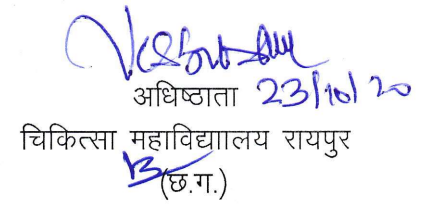 अधिष्ठाता 23/10/20
चिकित्सा महाविद्याालय रायपुर
(छ.ग.)